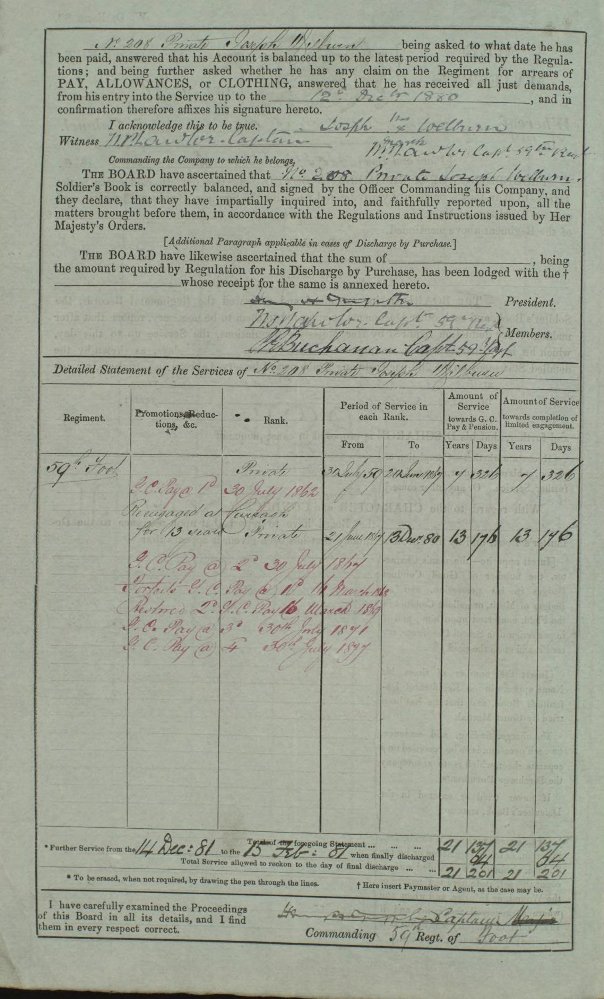 No. 208 Private Joseph Welburn being asked to what date he has
been paid, answered that his Account is balanced up to the latest period required by the Regula-
tions; and being further asked whether he has any claim on the Regiment for arrears of
PAY, ALLOWANCES, or CLOTHING, answered that he has received all just demands,
from his entry into the Service up to the Decbr 1880, and in
confirmation therefore affixes his signature hereto.
I acknowledge this to be true. Joseph his x Welburn
mark
Witness Captain
Capt 59th Regt
Commanding the Company to which he belongs,
THE BOARD have ascertained that No. 208 Private Joseph Welburn,
Soldier's Book is correctly balanced, and signed by the Officer Commanding his Company, and
they declare, that they have impartially inquired into, and faithfully reported upon, all the
matters brought before them, in accordance with the Regulations and Instructions issued by Her
Majesty's Orders.
[Additional Paragraph applicable in cases of Discharge by Purchase.]
THE BOARD have likewise ascertained that the sum of , being
the amount required by Regulation for his Discharge by Purchase, has been lodged with the †
whose receipt for the same is annexed hereto.
President.
Capt. 59 Regt
Members.
Buchanan Capt 59 Regt
Detailed Statement of the Services of No. 208 Private Joseph Welburn
Regiment. Promotions, Reduc-tions, &c. Rank. Period of Service in each Rank. Amount of Service towards G. C. Pay & Pension. Amount of Service towards completion of limited engagement.
From To Years Days Years Days
59th Foot Private 30 July 59 20 June 1867 7 326 7 326
G.C. Pay @ 1d 30 July 1862
Reengaged at
for 13 years Private 21 June 1867 13 Dec 80 13 176 13 176
G.C. Pay @ 2d 30 July 1867
Forfeits G.C. Pay @ 1d 16 March 1868
Restored 2d G.C. Pay 16 March 1869
G.C. Pay @ 3d 30th July 1871
G.C. Pay @ 4 30th July 1877
Total of the foregoing Statement ... ... ... 21 137 21 137
* Further Service from the 14 Dec: 81 to the 15 Feb: 81 when finally discharged 64 64
Total Service allowed to reckon to the day of final discharge ... ... 21 201 21 201
* To be erased, when not required, by drawing the pen through the lines. † Here insert Paymaster or Agent, as the case may be.
I have carefully examined the Proceedings
of this Board in all its details, and I find
them in every respect correct.
Captain
Commanding 59th Regt. of Foot